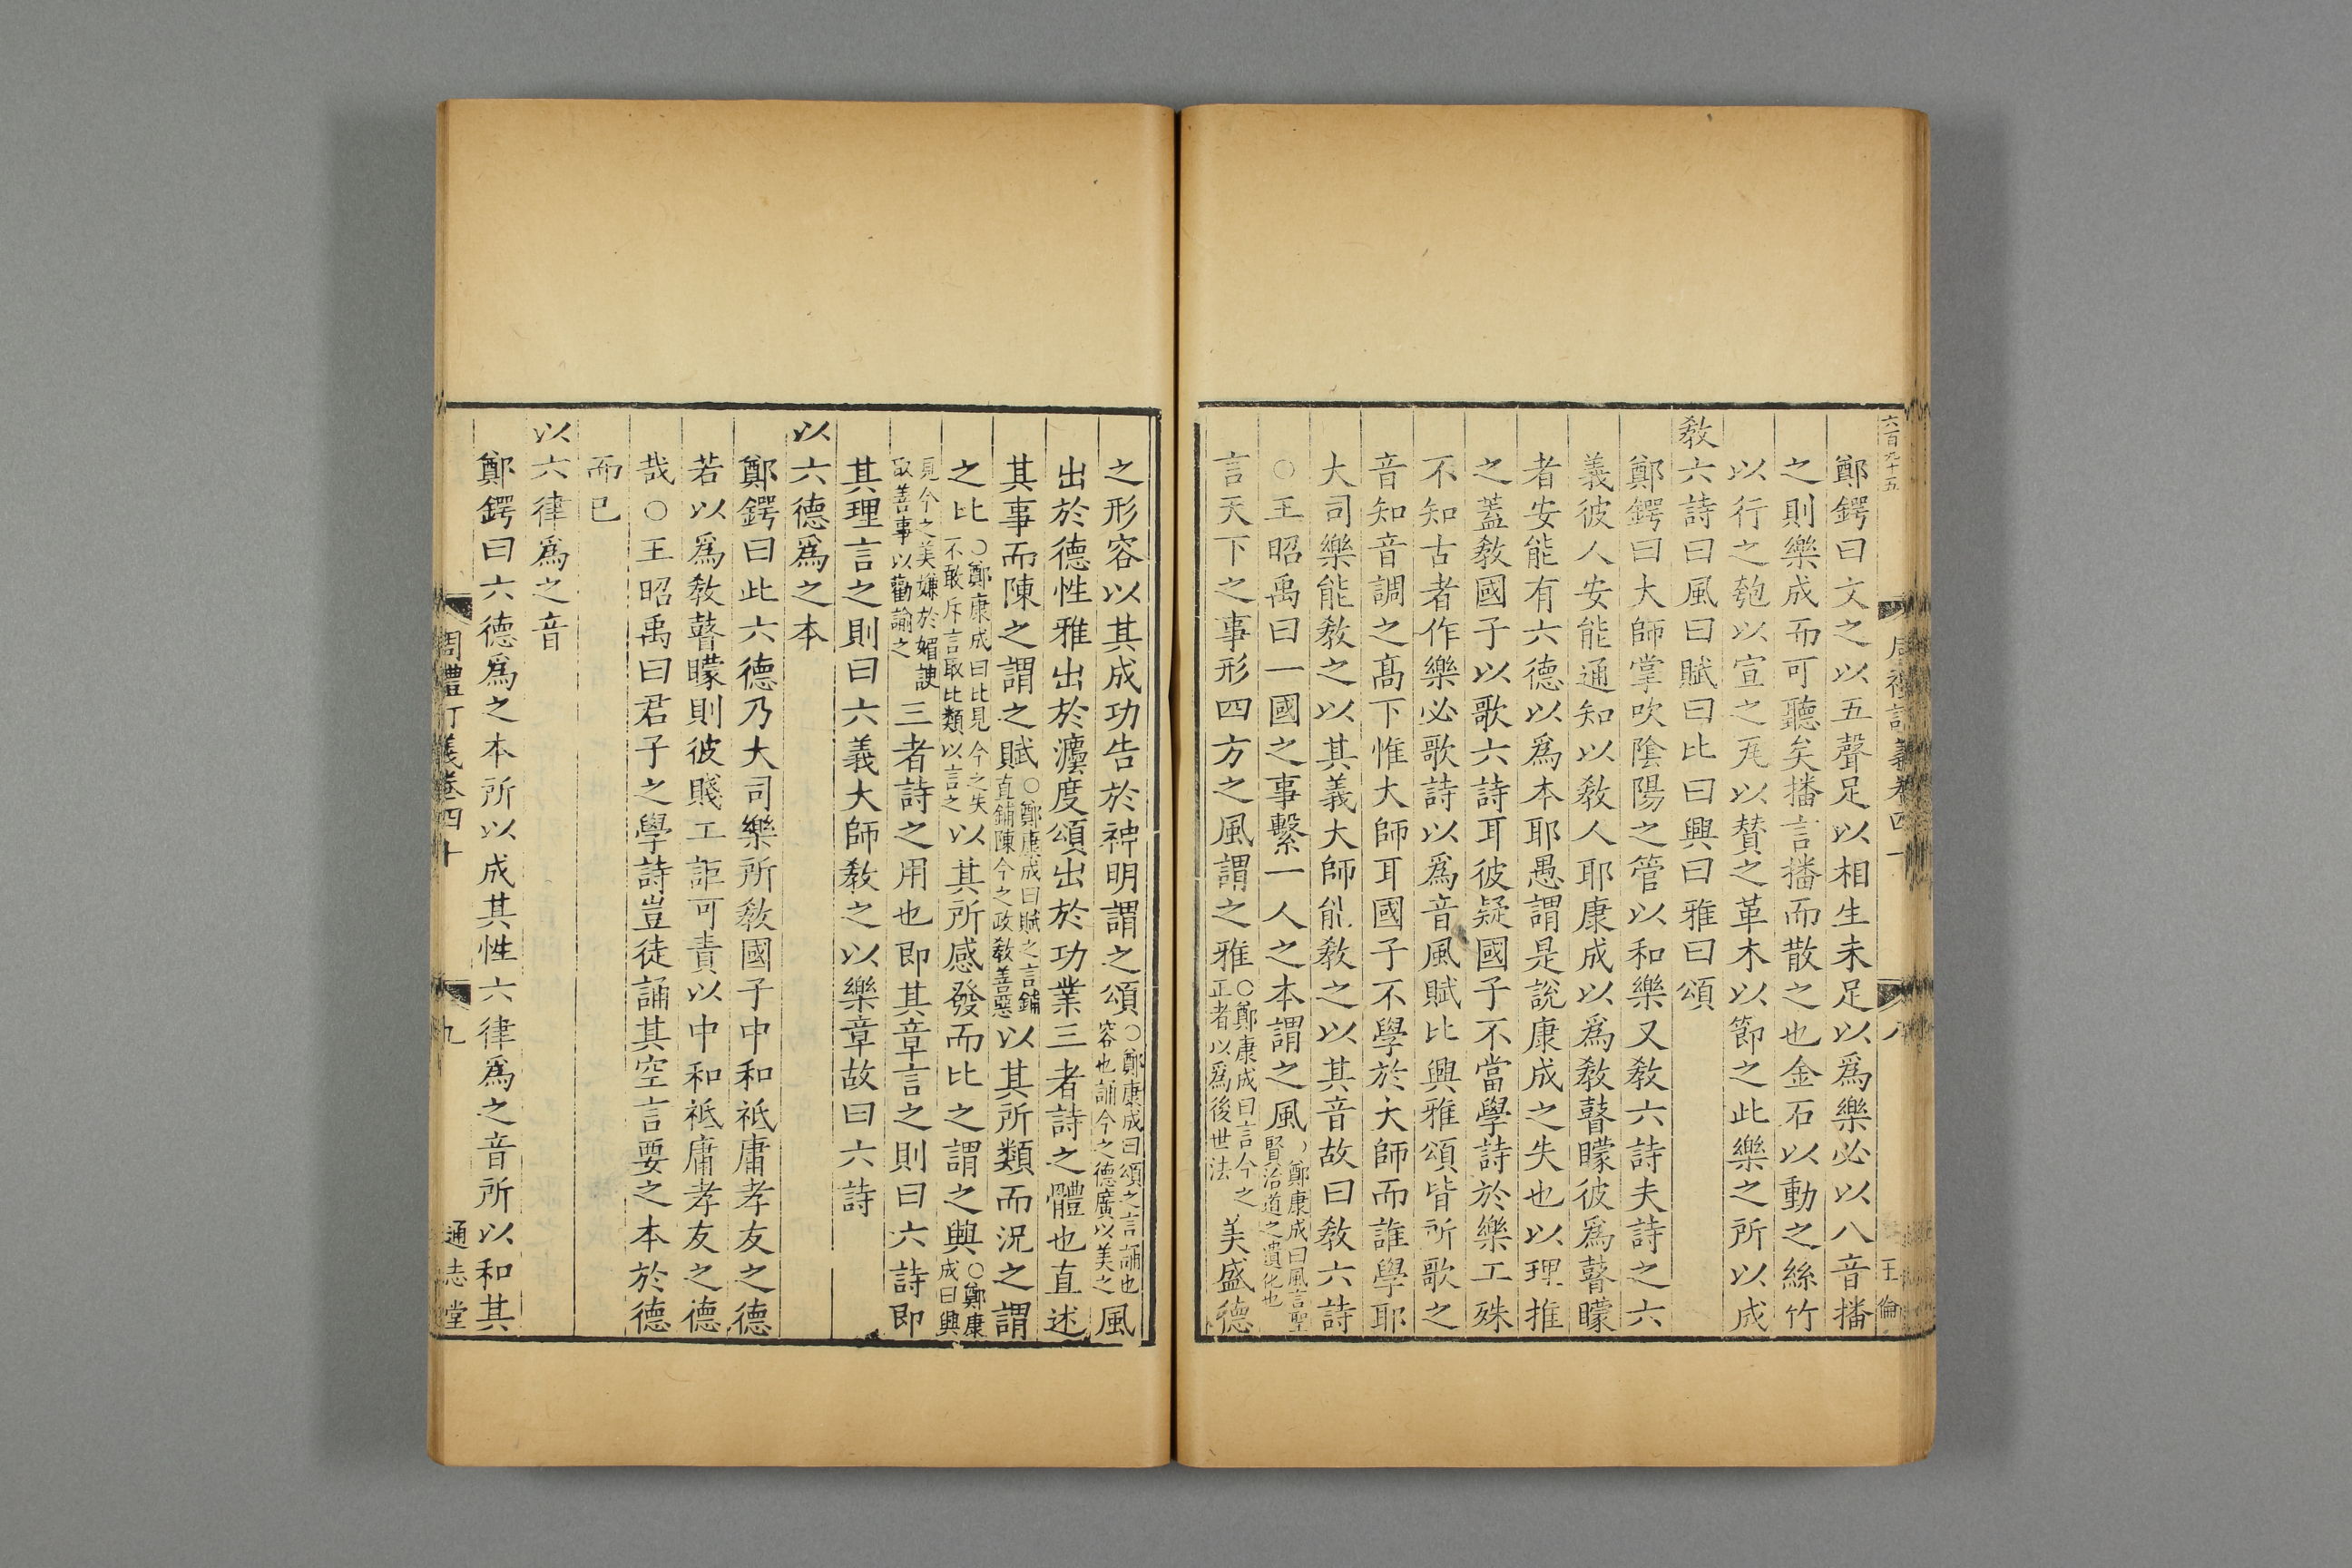 六百九十五
周禮訂義卷四十
八
王倫
鄭鍔曰文之以五聲足以相生未足以爲樂必以八音播
之則樂成而可聽矣播言播而散之也金石以動之絲竹
以行之匏以宣之瓦以賛之革木以節之此樂之所以成
敎六詩曰風曰賦曰比曰興曰雅曰頌
鄭鍔曰大師掌吹陰陽之管以和樂又敎六詩夫詩之六
義彼人安能通知以敎人耶康成以爲敎瞽矇彼爲瞽矇
者安能有六德以爲本耶愚謂是說康成之失也以理推
之蓋敎國子以歌六詩耳彼疑國子不當學詩於樂工殊
不知古者作樂必歌詩以爲音風賦比興雅頌皆所歌之
音知音調之高下惟大師耳國子不學於大師而誰學耶
大司樂能敎之以其義大師能敎之以其音故曰敎六詩
○王昭禹曰一國之事繫一人之本謂之風○鄭康成曰風言聖
賢治道之遺化也
言天下之事形四方之風謂之雅○鄭康成曰言今之
正者以爲後世法美盛德
之形容以其成功告於神明謂之頌○鄭康成曰頌之言誦也
容也誦今之德廣以美之風
出於德性雅出於灋度頌出於功業三者詩之體也直述
其事而陳之謂之賦○鄭康成曰賦之言鋪
直鋪陳今之政敎善惡以其所類而況之謂
之比○鄭康成曰比見今之失
不敢斥言取比類以言之以其所感發而比之謂之興○鄭康
成曰興
見今之美嫌於媚諛
取善事以勸諭之三者詩之用也即其章言之則曰六詩即
其理言之則曰六義大師敎之以樂章故曰六詩
以六德爲之本
鄭鍔曰此六德乃大司樂所敎國子中和祗庸孝友之德
若以爲敎瞽矇則彼賤工詎可責以中和祗庸孝友之德
哉○王昭禹曰君子之學詩豈徒誦其空言要之本於德
而已
以六律爲之音
鄭鍔曰六德爲之本所以成其性六律爲之音所以和其
周禮訂義卷四十
九
通志堂